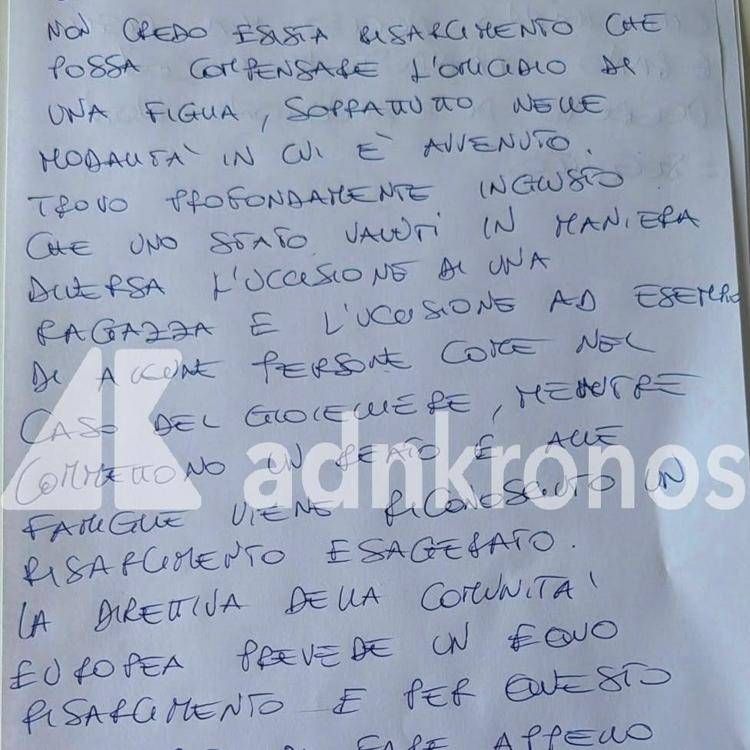 NON CREDO ESISTA RISARCIMENTO CHE
POSSA COMPENSARE L'OMICIDIO DI
UNA FIGLIA, SOPRATTUTTO NELLE
MODALITA' IN CUI E' AVVENUTO.
TROVO PROFONDAMENTE INGIUSTO
CHE UNO STATO VALUTI IN MANIERA
DIVERSA L'UCCISIONE DI UNA
RAGAZZA E L'UCCISIONE AD ESEMPIO
DI ALCUNE PERSONE COME NEL
CASO DEL GIOIELLIERE, MENTRE
COMMETTONO UN REATO E ALLE
FAMIGLIE VIENE RICONOSCIUTO UN
RISARCIMENTO ESAGERATO.
LA DIRETTIVA DELLA COMUNITA'
EUROPEA PREVEDE UN EQUO
RISARCIMENTO E PER QUESTO
FARE APPELLO
adnkronos